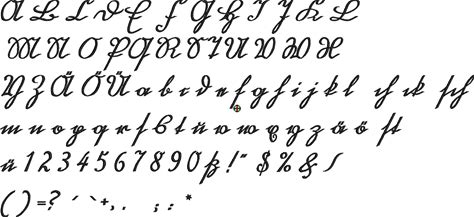 A B C D E F G H I J K L
M N O P Q R S T U V W X
Y Z Ä Ö Ü a b c d e f g h i j k l ch ck sch
m n o p q r s t u v w x y z ä ö st
ü 1 2 3 4 5 6 7 8 9 0 ß ! " $ % & /
( ) = ? ´ ` + , . ; : *